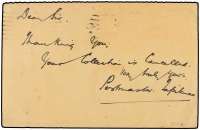 Dear Sir.
Thanking You.
Your Collection is Cancelled.
Very truly yours
Postmaster.